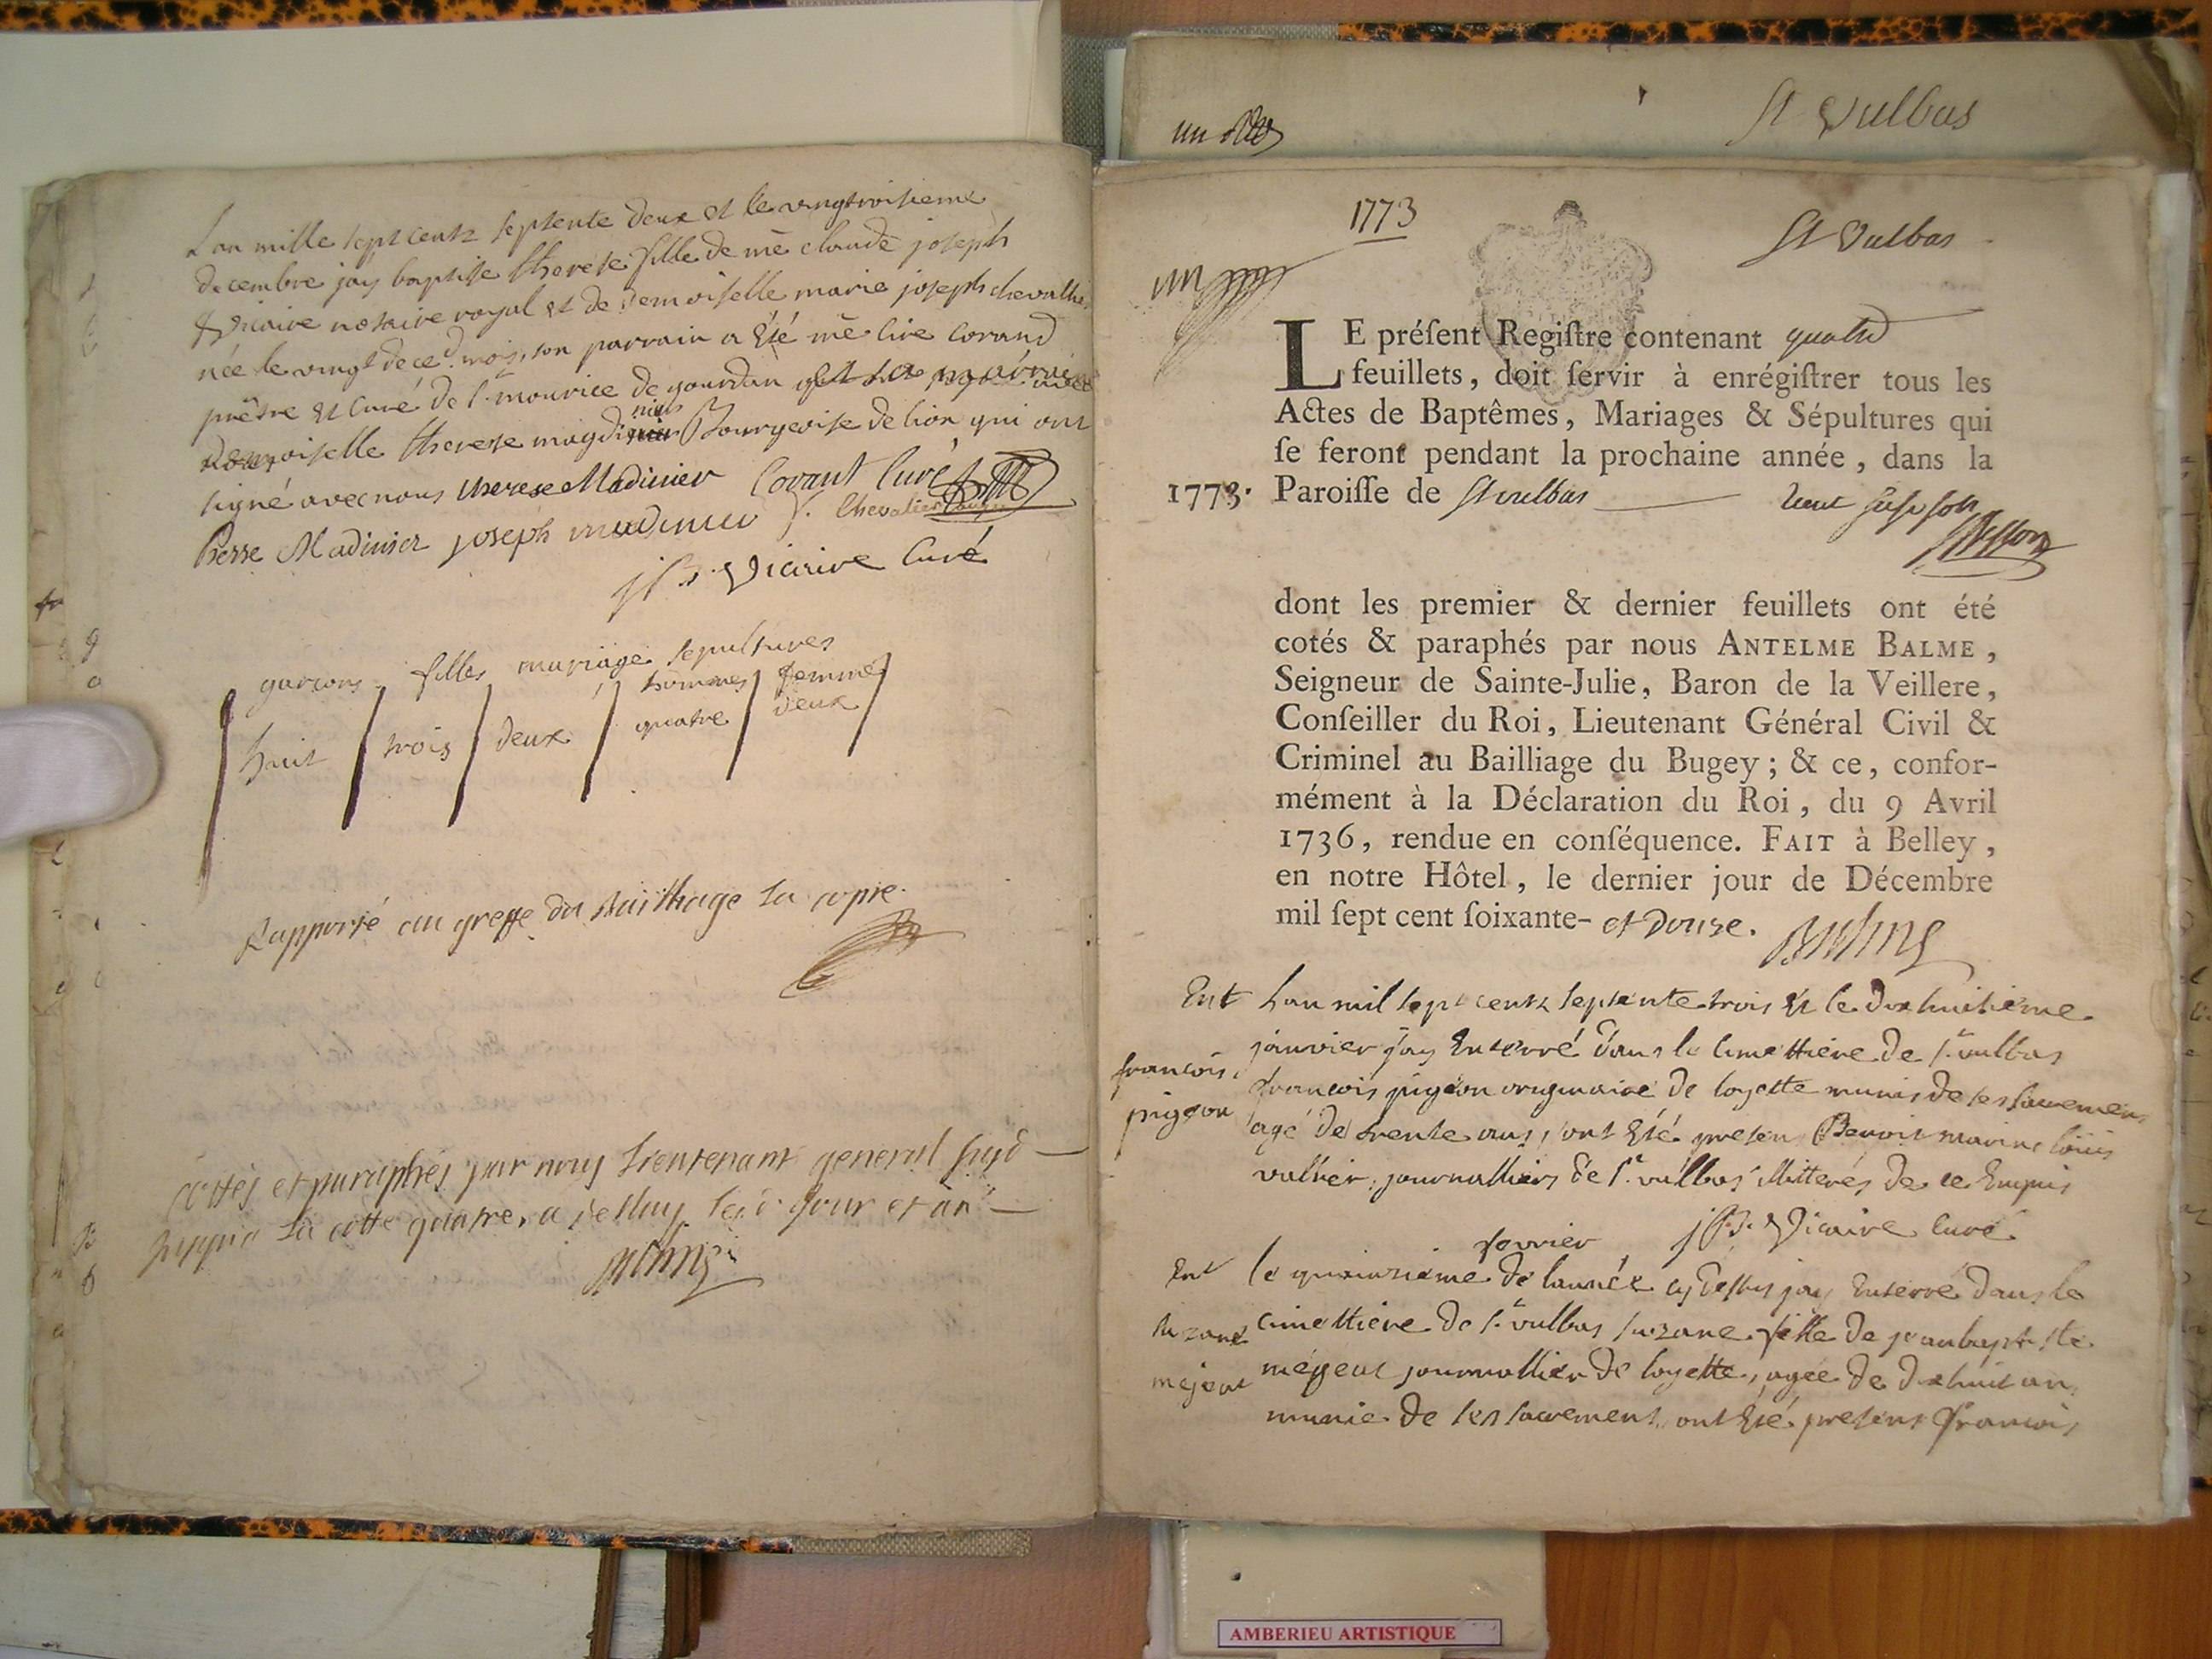 Lan mille sept centz septente deux et le vingtroisieme
decembre jay baptise therese fille de me claude joseph
Vicaire notaire royal et de demoiselle marie joseph chevallie
née le vingt de ce d. mois, son parrain a Eté me Corand
prêtre et Curé de st mourice de gourdan et sa marraine
demoiselle therese Bourgeoise de lion qui ont
signé avec nous therese Madinier Corant Curé
Pierre Madinier joseph madinier J. Chevalier
j B. Vicaire Curé
garcons filles mariage sepultures
hommes femmes
huit trois deux quatre deux
Rapporté au greffe du Bailliage la copie.
cottés et paraphés par nous Lieutenant general
la cotte quatre, a Belley jour et an
un
St Vulbas
1773
St Vulbas
un
LE préſent Regiſtre contenant quatre
feuillets, doit ſervir à enrégiſtrer tous les
Actes de Baptêmes, Mariages & Sépultures qui
ſe feront pendant la prochaine année, dans la
1773. Paroiſſe de St vulbas
dont les premier & dernier feuillets ont été
cotés & paraphés par nous ANTELME BALME,
Seigneur de Sainte-Julie, Baron de la Veillere,
Conſeiller du Roi, Lieutenant Général Civil &
Criminel au Bailliage du Bugey; & ce, confor-
mément à la Déclaration du Roi, du 9 Avril
1736, rendue en conſéquence. FAIT à Belley,
en notre Hôtel, le dernier jour de Décembre
mil ſept cent ſoixante- et Douze. Balme
Ent Lan mil sept centz septente trois Et le dix huitieme
janvier jay Enterré dans le cimettiere de st vulbas
francois pigeon
francois pigeon originaire de loyette munis de ses sacremens
agé de trente ans, ont Eté presens Benoit marin louis
vallier, journalliers de St. vulbas illitterés de ce Enquis
j B. Vicaire Curé
fevrier
Ent le quinzieme de lannée cy dessus jay Enterré dans le
suzane mejeat
cimettiere de st vulbas suzane fille de jean baptiste
mejeat journallier de loyette, agée de dix huit ans
munie de ses sacremens ont Eté presens francois
AMBERIEU ARTISTIQUE